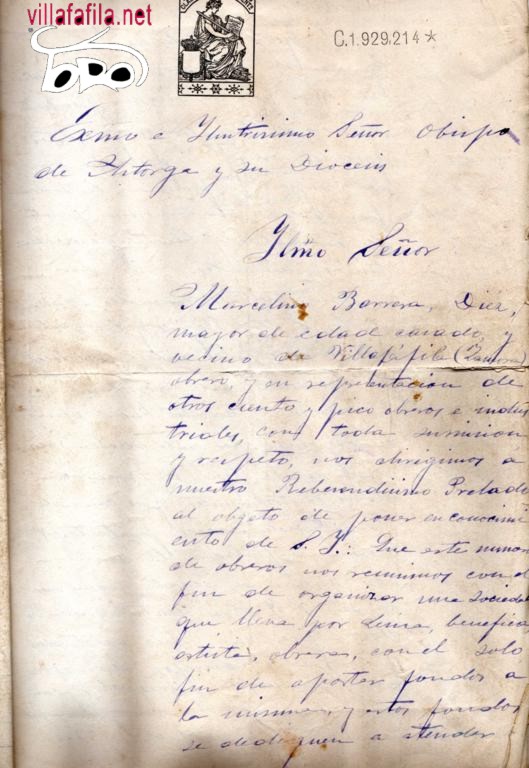 villafafila.net
TODO
C.1.929,214 *
Exmo e Ylmtrisimo Señor Obispo
de Astorga y su Diocesis
Ylmo Señor
Marcelino Barrera, Diez,
mayor de edad casado, y
vecino de Villafáfila (Zamora)
obrero, y en representacion de
otros ciento y pico obreros e indus
triales, con toda sumision
y respeto, nos dirigimos a
nuestro Reberendisimo Prelado
al objeto de poner en conocimi
ento de S. Y.: Que este numero
de obreros nos reunimos con el
fin de organizar una sociedad
que lleva por lema, benefica
artista, obrera, con el solo
fin de aportar fondos a
la misma, y estos fondos
se dediquen a atender